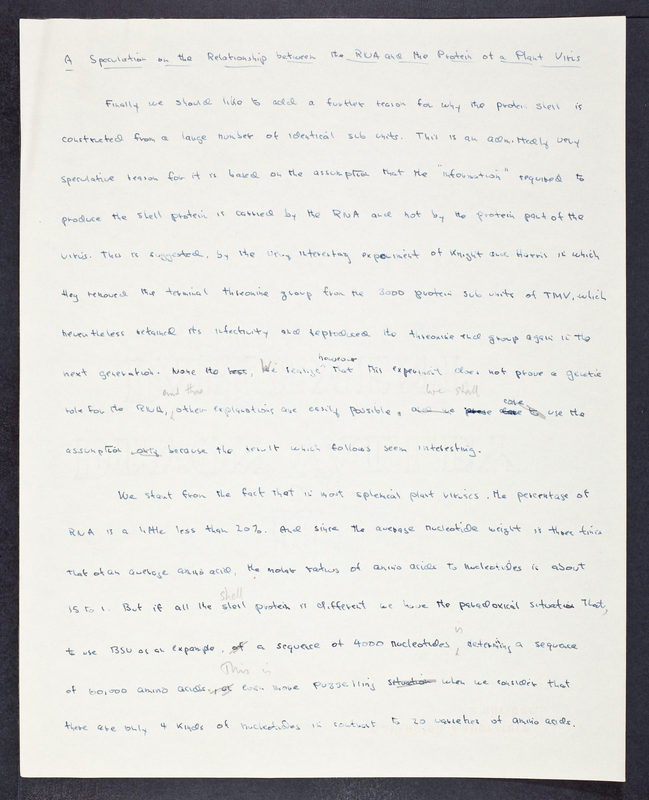 A Speculation on the Relationship between the RNA and the Protein of a Plant Virus
Finally we should like to add a further reason for why the protein shell is
constructed from a large number of identical sub units. This is an admittedly very
speculative reason for it is based on the assumption that the "information" required to
produce the shell protein is carried by the RNA and not by the protein part of the
virus. This is suggested, by the very interesting experiment of Knight and Harris in which
they removed the terminal threonine group from the 3000 protein sub units of TMV, which
nevertheless retained its infectivity and reproduced the threonine end group again in the
however
next generation. None the less, We realize that this experiment does not prove a genetic
and that we shall
role for the RNA, other explanations are easily possible, and we use the
assumption only because the result which follows seem interesting.
We start from the fact that in most spherical plant viruses, the percentage of
RNA is a little less than 20%. And since the average nucleotide weight is three times
that of an average amino acid, the molar ratios of amino acids to nucleotides is about
shell
15 to 1. But if all the shell protein is different we have the paradoxical situation that,
to use BSV as an example, of a sequence of 4000 nucleotides, determing a sequence
This is
of 60,000 amino acids, even more puzzelling situation when we consider that
there are only 4 kinds of nucleotides in contrast to 20 varieties of amino acids.